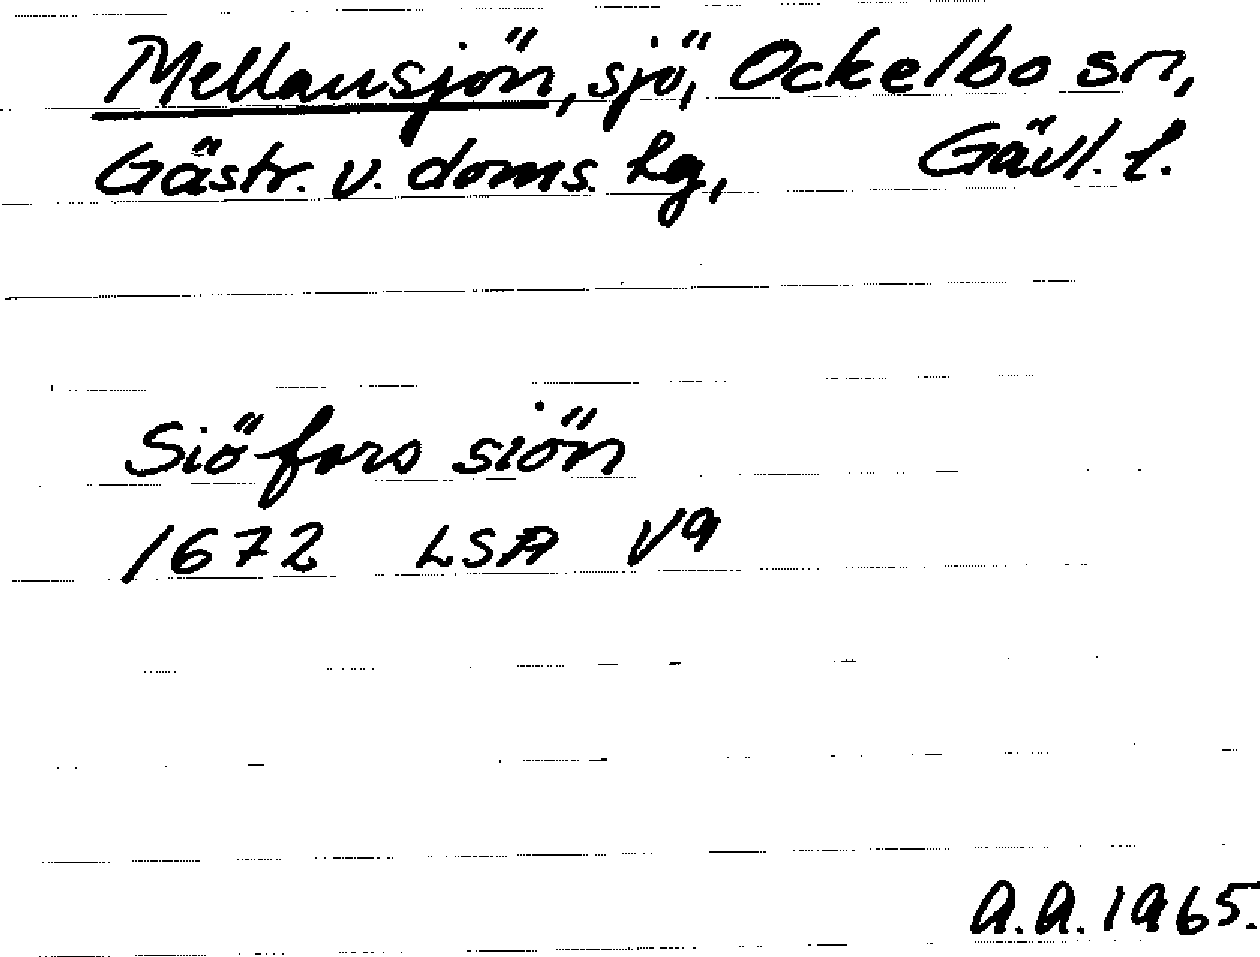 Mellansjön, sjö, Ockelbo sn,
Gästr. v. doms. hg, Gävl. l.
Siöfors siön
1672 LSA V9
A.A. 1965.